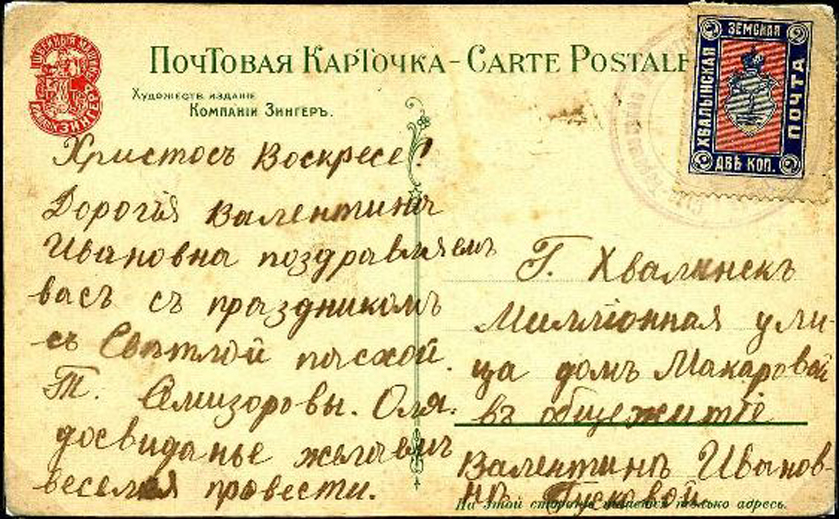 Почтовая Карточка - Carte Postale
Художеств. издание
Компаніи Зингеръ.
ЗИНГЕРЪ
ЗЕМСКАЯ
ХВАЛЫНСКАЯ
ПОЧТА
2 ДВѢ КОП. 2
Христосъ Воскресе!
Дорогія Валентина
Ивановна поздравляемъ
васъ съ праздникомъ
съ Свѣтлой пасхой.
Т. Амизоровы. Оля.
досвиданье желаемъ
веселія провести.
Г. Хвалынскъ
Милліонная ули-
ца домъ Макаровой
въ общежитіе
Валентинѣ Иванов-
нѣ Гусковой
На этой сторонѣ пишется только адресъ.